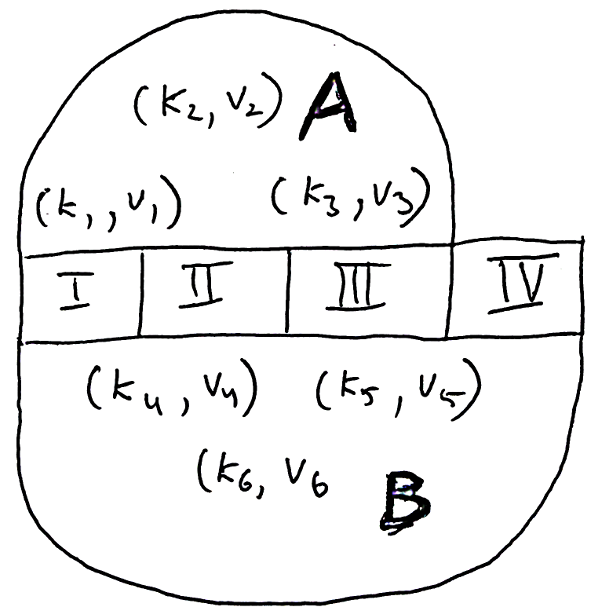 (K2, V2) A
(K1, V1) (K3, V3)
I II III IV
(K4, V4) (K5, V5)
(K6, V6 B